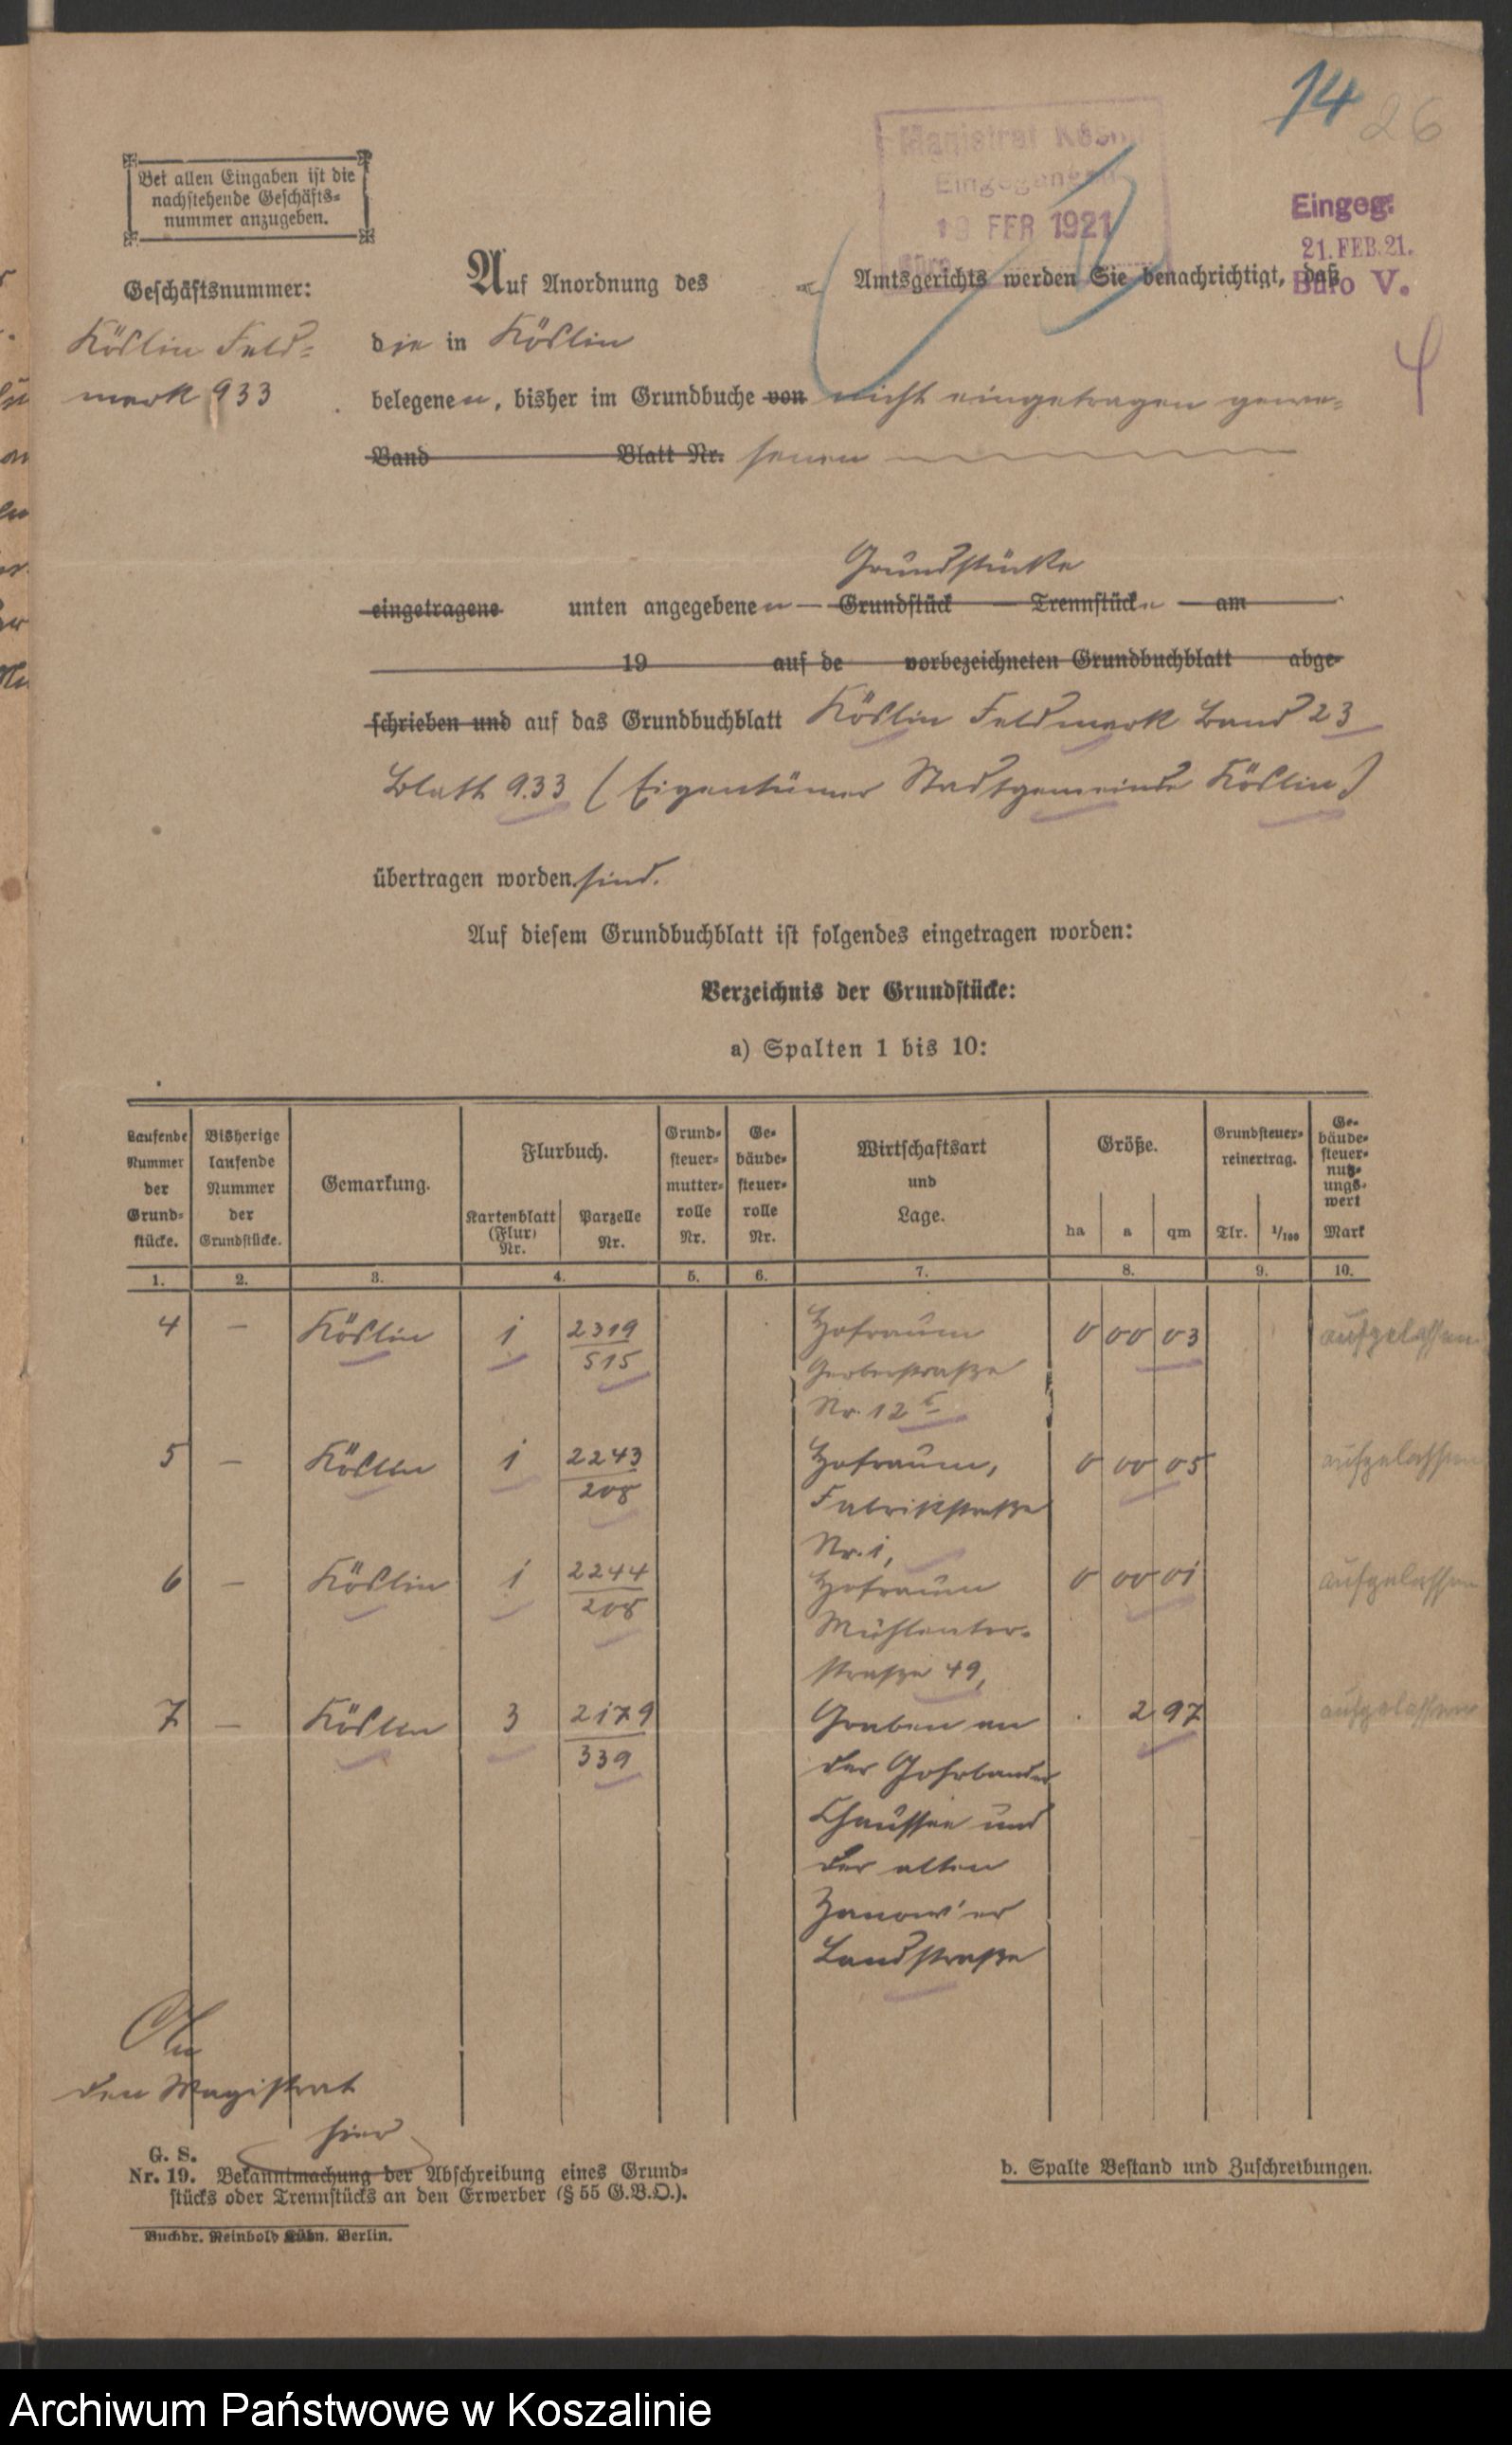 14 26
Magistrat Köslin
Eingegangen
19 FEB 1921
Büro
Eingeg.
21. FEB. 21.
Büro V.
Bei allen Eingaben ist die
nachstehende Geschäfts-
nummer anzugeben.
Geschäftsnummer:
Köslin Feld-
mark 933
Auf Anordnung des Amtsgerichts werden Sie benachrichtigt, daß
die in Köslin
belegenen, bisher im Grundbuche von nicht eingetragen gewe-
Band Blatt Nr. senen
Grundstücke
eingetragene unten angegebenen Grundstück Trennstück am
19 auf de vorbezeichneten Grundbuchblatt abge-
schrieben und auf das Grundbuchblatt Köslin Feldmark Band 23
Blatt 933 (Eigentümer Stadtgemeinde Köslin)
übertragen worden sind.
Auf diesem Grundbuchblatt ist folgendes eingetragen worden:
Verzeichnis der Grundstücke:
a) Spalten 1 bis 10:
Laufende Nummer der Grund-stücke. Bisherige laufende Nummer der Grundstücke. Gemarkung. Flurbuch. Kartenblatt (Flur) Nr. Parzelle Nr. Grund-steuer-mutter-rolle Nr. Ge-bäude-steuer-rolle Nr. Wirtschaftsart und Lage. Größe. ha a qm Grundsteuer-reinertrag. Tlr. 1/100 Ge-bäude-steuer-nutz-ungs-wert Mark
1. 2. 3. 4. 5. 6. 7. 8. 9. 10.
4 – Köslin 1 2319/515 Hofraum 0 00 03 aufgelassen
Gerberstraße
Nr. 12 c
5 – Köslin 1 2243/208 Hofraum, 0 00 05 aufgelassen
Fabrikstraße
Nr. 1,
6 – Köslin 1 2244/208 Hofraum 0 00 01 aufgelassen
Mühlentor-
straße 49,
7 – Köslin 3 2179/339 Graben an . 2 97 aufgelassen
der Gohrbander
Chaussee und
der alten
Zanow'er
Landstraße
An
den Magistrat
hier
G. S.
Nr. 19. Bekanntmachung der Abschreibung eines Grund-
stücks oder Trennstücks an den Erwerber (§ 55 G.B.O.).
Buchdr. Reinhold Kühn. Berlin.
b. Spalte Bestand und Zuschreibungen.
Archiwum Państwowe w Koszalinie